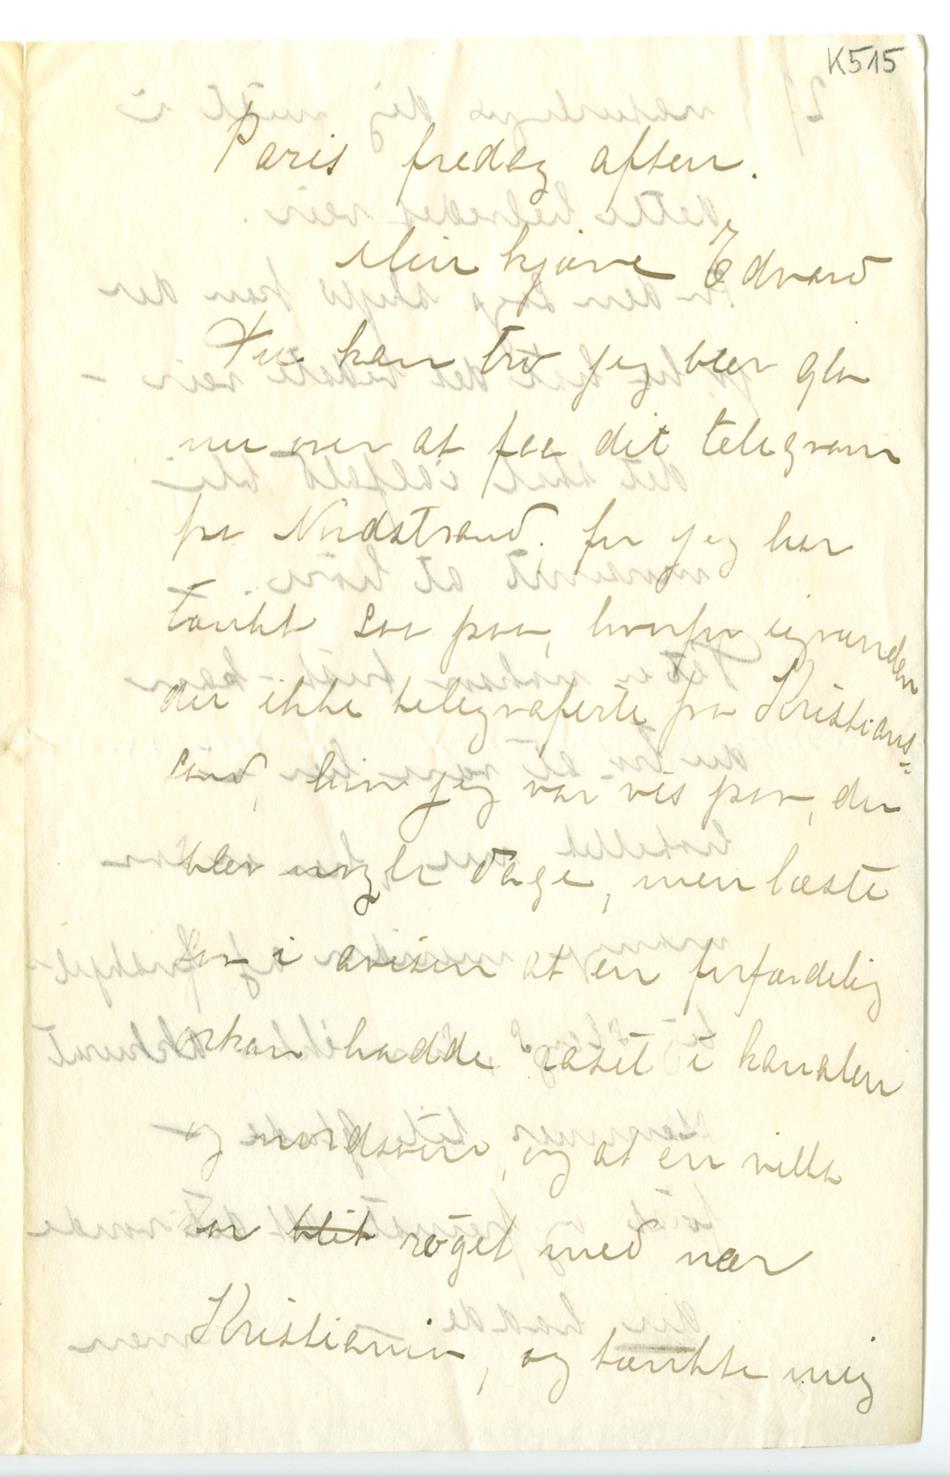 K515
Paris fredag aften.
Min kjære Edvard
Du kan tro jeg blev gla
nu over at faa dit telegram
fra Nordstrand. for jeg har
tænkt saa paa, hvorfor i verden
du ikke telegraferte fra Kristians=
sand, hvor jeg var vis paa, du
blev nogle dage, men læste
saa i avisen at en forfærdelig
orkan hadde raset i kanalen
og nordsøen, og at en villa
var blit røget med nær
Kristiania, og tænkte mig